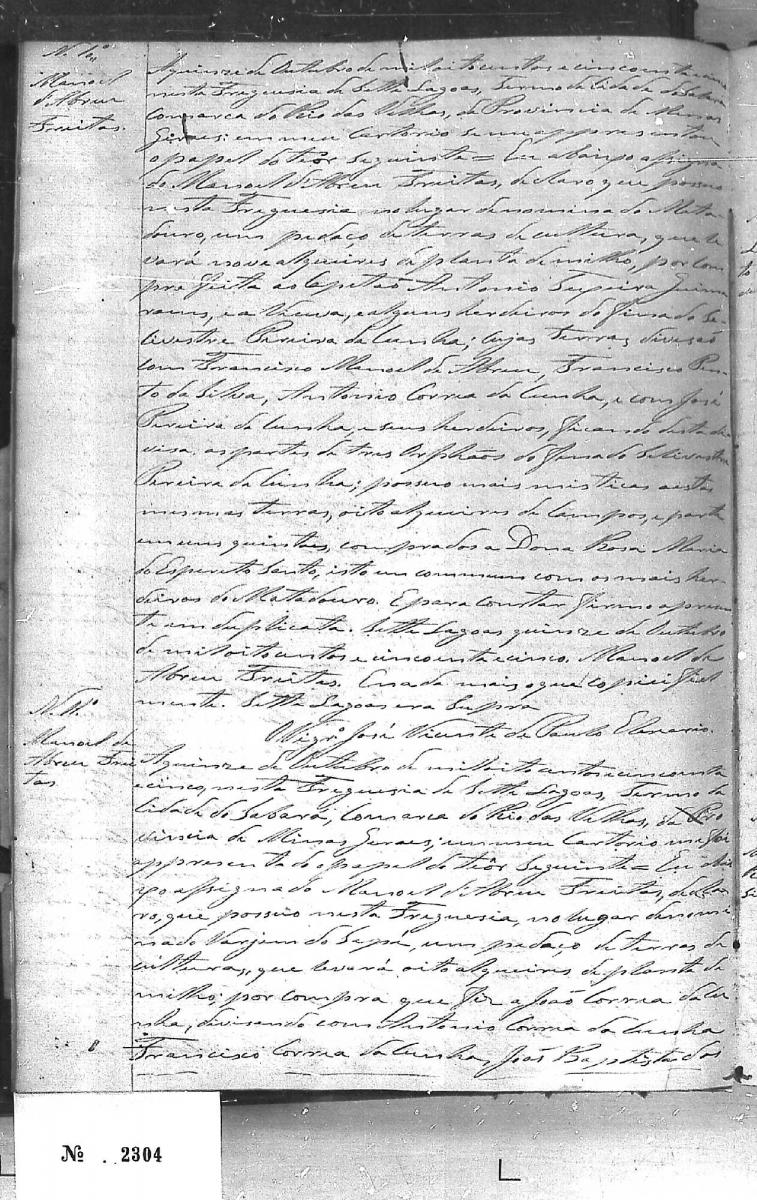 N. 10
Manoel
d'Abreu
Freitas.
A quinze de Outubro de mil oito centos e cincoenta e cinco
nesta Freguesia de Sette Lagoas, Termo da Cidade de Sabará
Comarca do Rio das Velhas, da Provincia de Minas
Geraes: em meu Cartorio se me appresentou
o papel do teôr Seguinte = Eu abaixo assigna
do Manoel d'Abreu Freitas, declaro que possuo
nesta Freguesia no lugar denominado Mata-
douro, um pedaço de terras de cultura, que le
vará nove alqueires de planta de milho, por com
pra feita ao Capitão Antonio Teixeira Guima
raens, e a Viuva, e alguns herdeiros do finado Se
livestre Pereira da Cunha; cujas terras divisão
com Francisco Manoel de Abreu, Francisco Pin
to da Silva, Antonio Correa da Cunha, e com José
Pereira da Cunha, e seus herdeiros, ficando desta di
visa, as partes de tres Orphãos do finado Selivestre
Pereira da Cunha; possuo mais misticas a estas
mesmas terras, oito alqueires de Campos, e parte
em uns quintaes, comprados a Dona Rosa Maria
do Espereto Santo, isto em commum com os mais her
deiros do Matadouro. E para constar firmo a presen
te em duplicata. Sette Lagoas quinze de Outubro
de mil oito centos e cincoenta e cinco. Manoel de
Abreu Freitas. E nada mais o que copiei fiel
mente. Sette Lagoas era Supra
O Vigr.º José Vicente de Paula Elenario.
N. 11
Manoel de
Abreu Frei
tas.
A quinze de Outubro de mil oito centos e cincoenta
e cinco, nesta Freguesia de Sette Lagoas, Termo da
Cidade do Sabará, Comarca do Rio das Velhas, da Pro
vincia de Minas Geraes; em meu Cartorio me foi
appresentado o papel do teôr Seguinte = Eu abai
xo assignado Manoel d'Abreu Freitas, decla
ro, que possuo nesta Freguesia, no lugar denomi
nado Varjem do Sapé, um pedaço de terras de
culturas, que levará oito alqueires de planta de
milho; por compra que fiz a João Correa da Cu
nha, devisando com Antonio Correa da Cunha
Francisco Correa da Cunha, Joaõ Baptista dos
8
Nº 2304